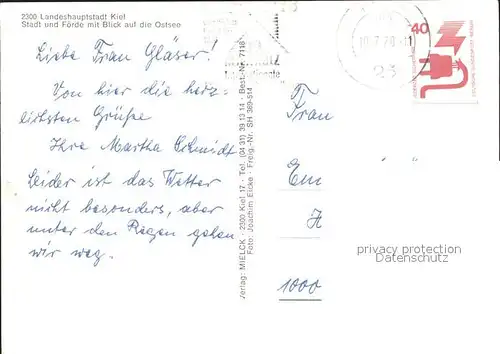 2300 Landeshauptstadt Kiel
Stadt und Förde mit Blick auf die Ostsee
Liebe Frau Gläser!
Von hier die herz-
lichsten Grüße
Ihre Martha Schmidt
Leider ist das Wetter
nicht besonders, aber
unter den Regen gehen
wir weg.
Verlag: MIELCK - 2300 Kiel 17 - Tel. (04 31) 39 13 14 - Best.-Nr. 7118
Foto: Joachim Eicke Freig.-Nr. SH 369-514
40
23
Frau
Em
H
1000
privacy protection
Datenschutz